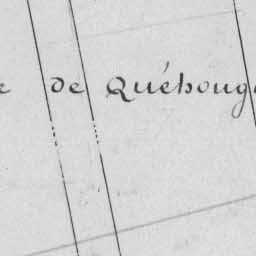 de Quéhoug